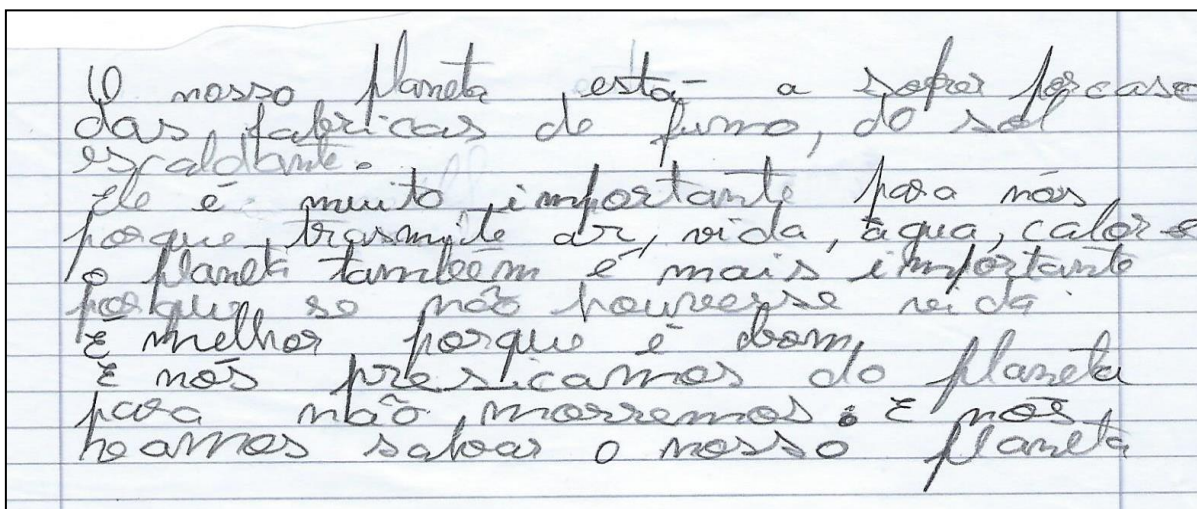 O nosso planeta está a sofrer por caso
das fabricas de fumo, do sol
escaldante.
Ele é muito importante para nós
porque trasmite ar, vida, água, calor e
o planeta também é mais importante
porque se não houvesse vida.
E melhor porque é bom,
E nós presicamos do planeta
para não morremos. E nós
salvar o nosso planeta